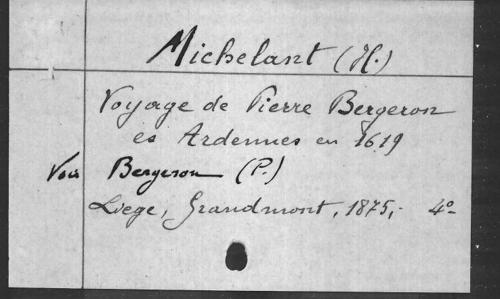 Michelant (H.)
Voyage de Pierre Bergeron
es Ardennes en 1619
Voir Bergeron (P.)
Liege, Grandmont, 1875,- 4°-